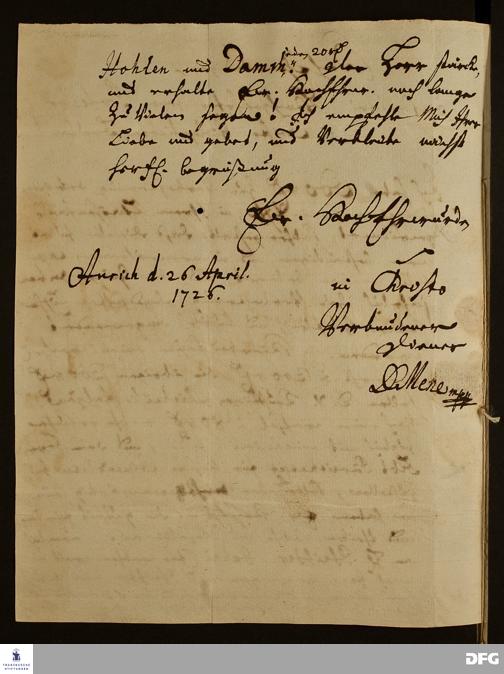 Hohlen und Damm. jeden 20 rth. Der Herr stärcke,
und erhalte Ew. HochEhrw. noch lange
zu Vielen Segen! Ich empfehle Mich Ihrer
Liebe und gebet, und Verbleibe nächst
hertzl. begrüßung
Ew. HochEhrwürden
Aurich d. 26 April.
1726.
in Christo
Verbundener
Diener
Mene mpp
FRANCKESCHE
STIFTUNGEN
DFG